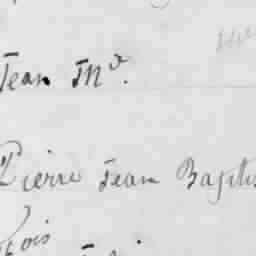 Jean Md.
Pierre Jean Baptis
çois